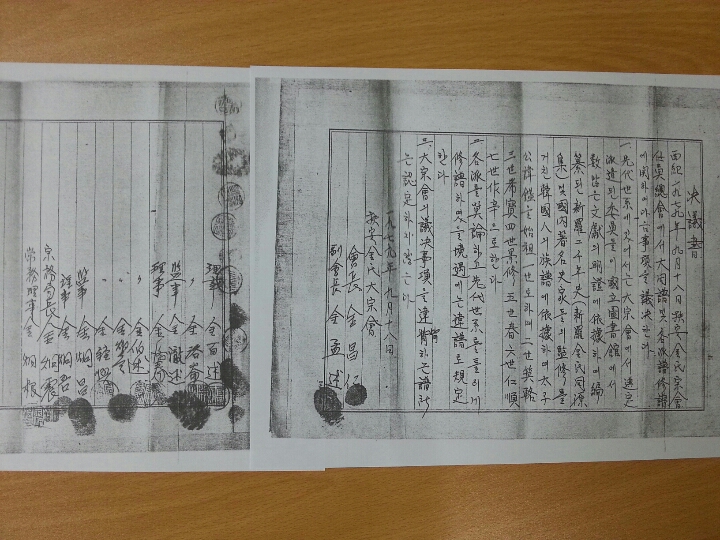 決議書
西紀一九七九年 九月十八日 扶安金氏宗會
任員總會에서 大同譜 및 各派譜修譜
에 関하여 아래 事項을 議決한다
一. 先代世系에 있어서는 大宗會에서 選定
派遣된 委員들이 國立圖書館에서
数많은 文獻의 明證에 依據하여 編
纂된 新羅二千年史(新羅金氏同源
集) 및 國內著名史家들의 監修를
거친 韓國人의 族譜에 依據하여 太子
公諱鎰을 始祖一世로 하며 二世 契輅
三世 希寶 四世 景修 五世 春 六世 仁順
七世 作辛으로 한다
一. 各派를 莫論하고 先代世系를 틀리게
修譜하였을 境遇에는 違譜로 規定
한다
一. 大宗會의 議決事項을 違背하는 譜所
는 認定하지 않는다
一九七九年 九月十八日
扶安金氏大宗會
會長 金昌
副會長 金孟述
理事 金百述
〃 金
監事 金澈述
理事 金
〃 金伯述
〃 金
〃 金
監事 金炯昌
理事 金炯
宗務局長 金炯震
常務理事 金炯根